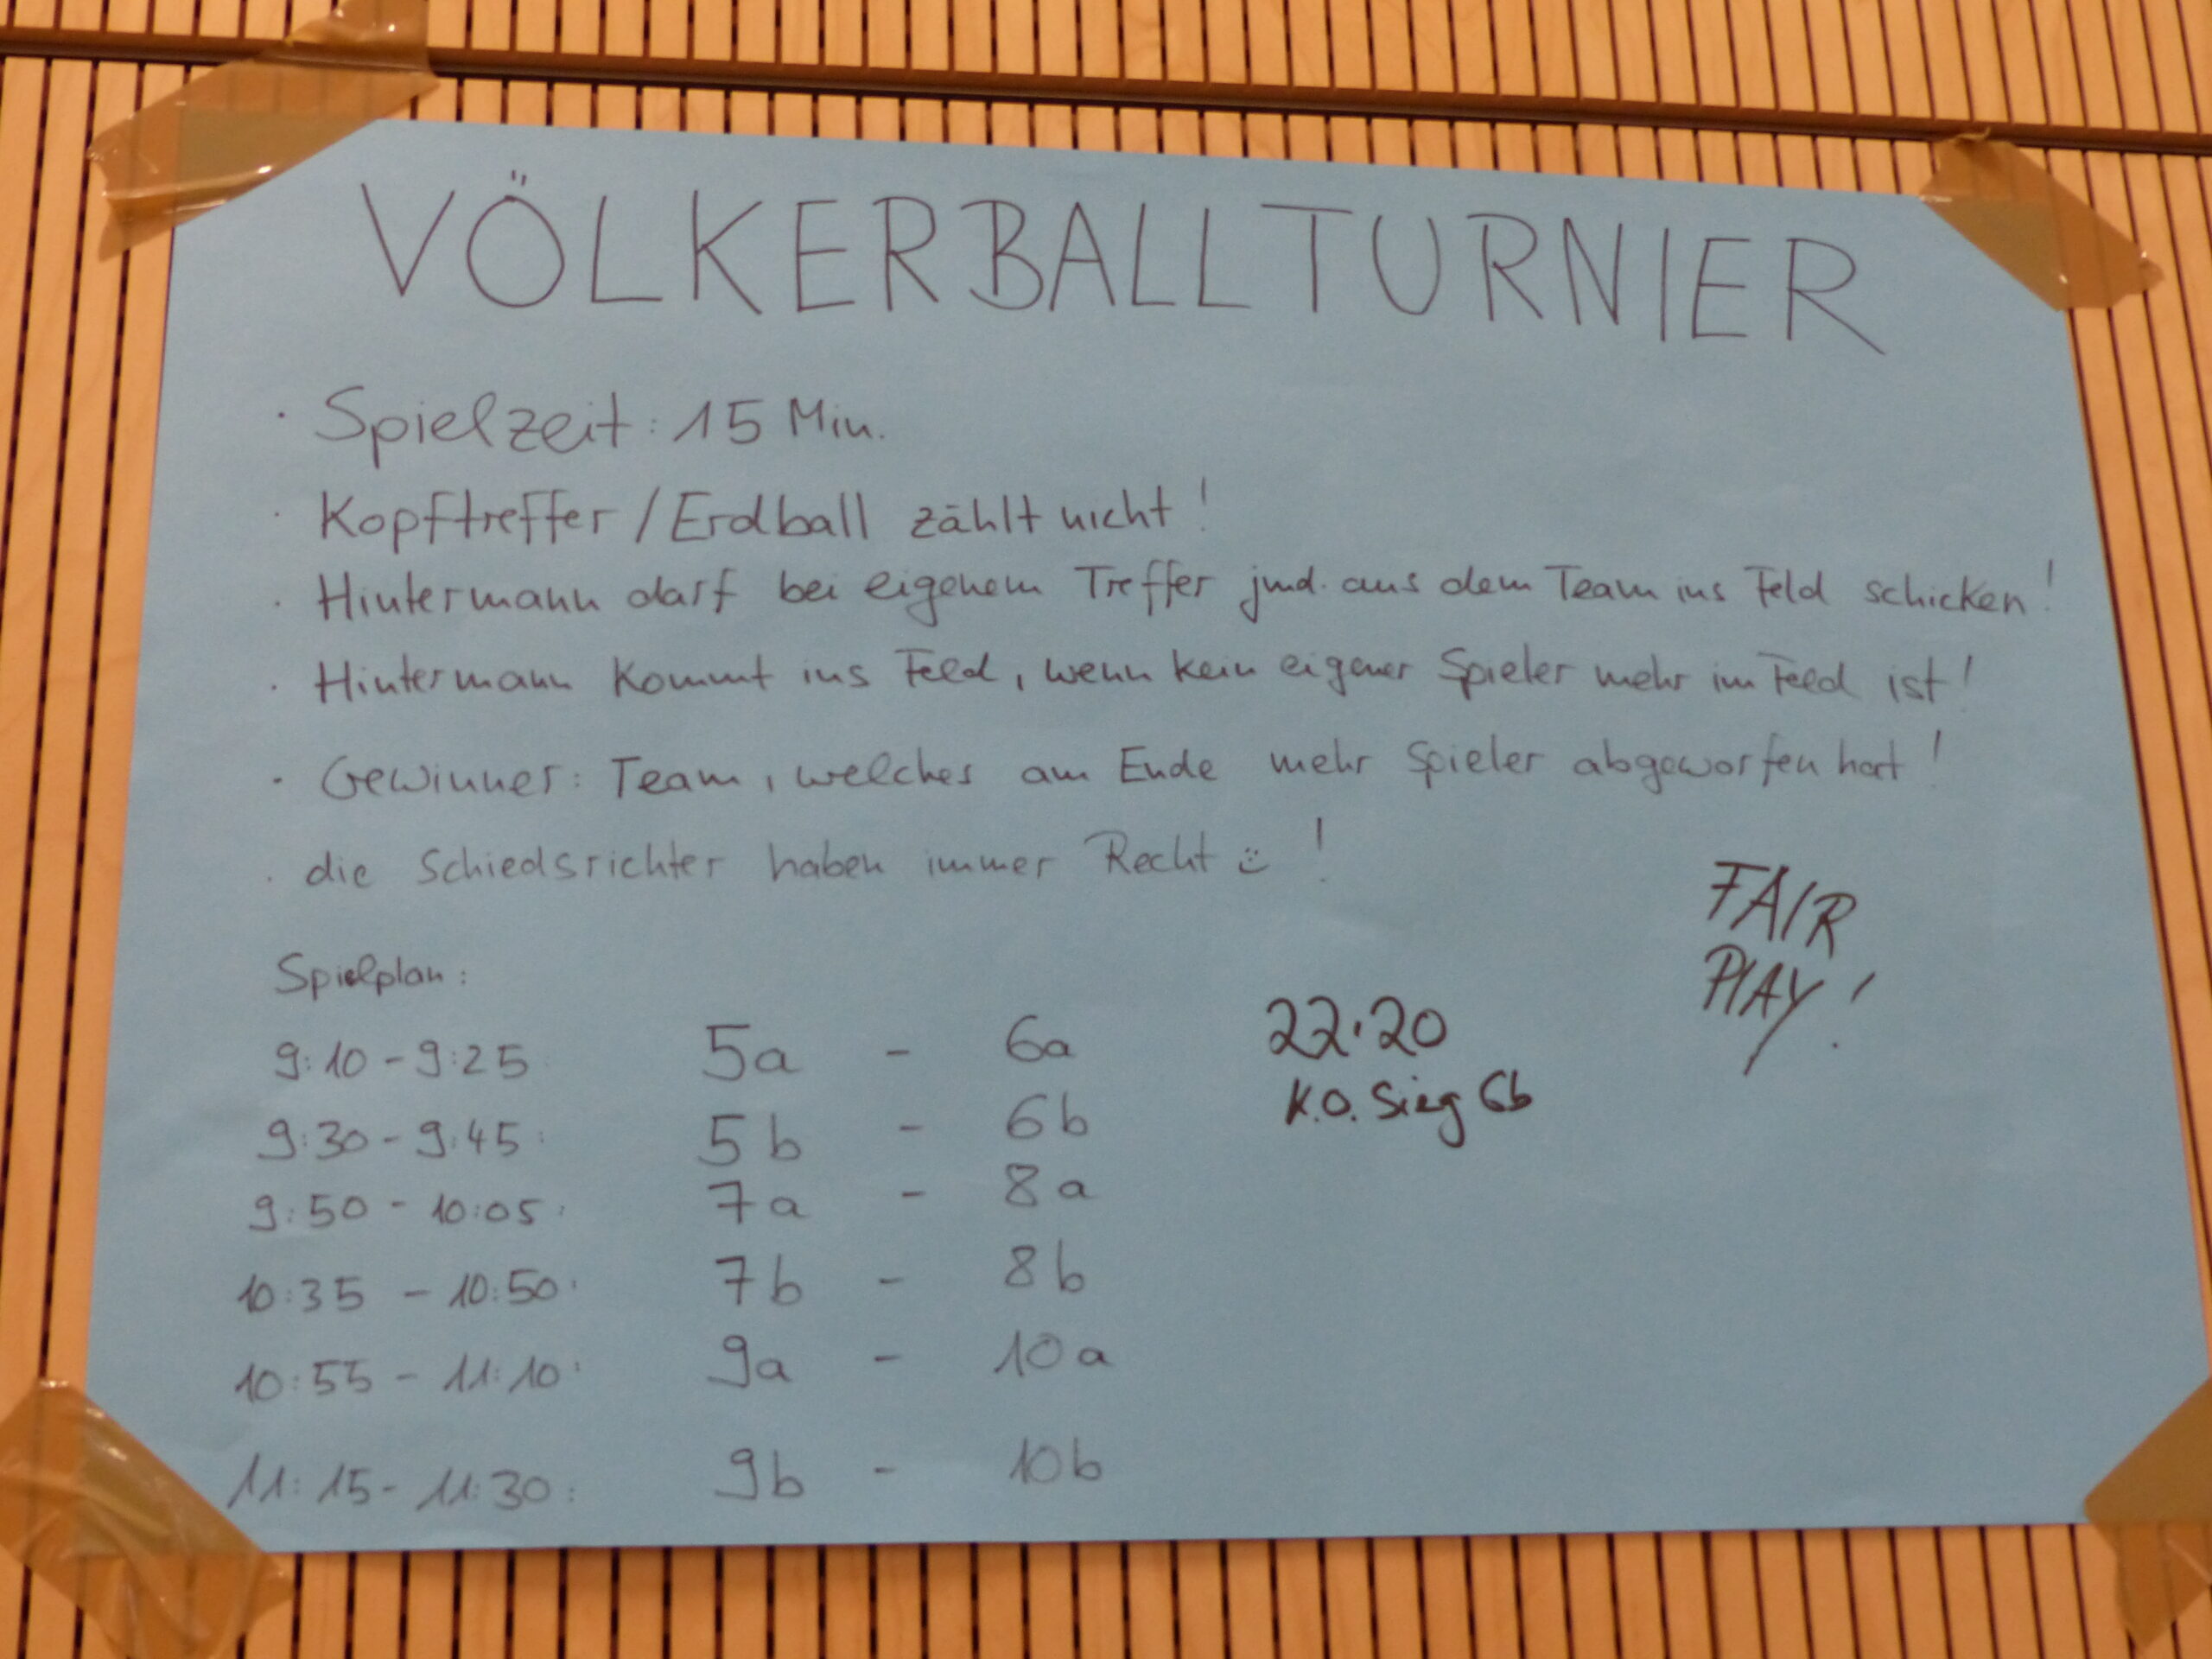 VÖLKERBALLTURNIER
· Spielzeit: 15 Min.
· Kopftreffer / Erdball zählt nicht!
· Hintermann darf bei eigenem Treffer jmd. aus dem Team ins Feld schicken!
· Hintermann kommt ins Feld, wenn kein eigener Spieler mehr im Feld ist!
· Gewinner: Team, welches am Ende mehr Spieler abgeworfen hat!
· die Schiedsrichter haben immer Recht ☺!
FAIR
PLAY!
Spielplan:
9:10 - 9:25 5a - 6a 22:20
9:30 - 9:45: 5b - 6b K.O. Sieg 6b
9:50 - 10:05: 7a - 8a
10:35 - 10:50: 7b - 8b
10:55 - 11:10: 9a - 10a
11:15 - 11:30: 9b - 10b